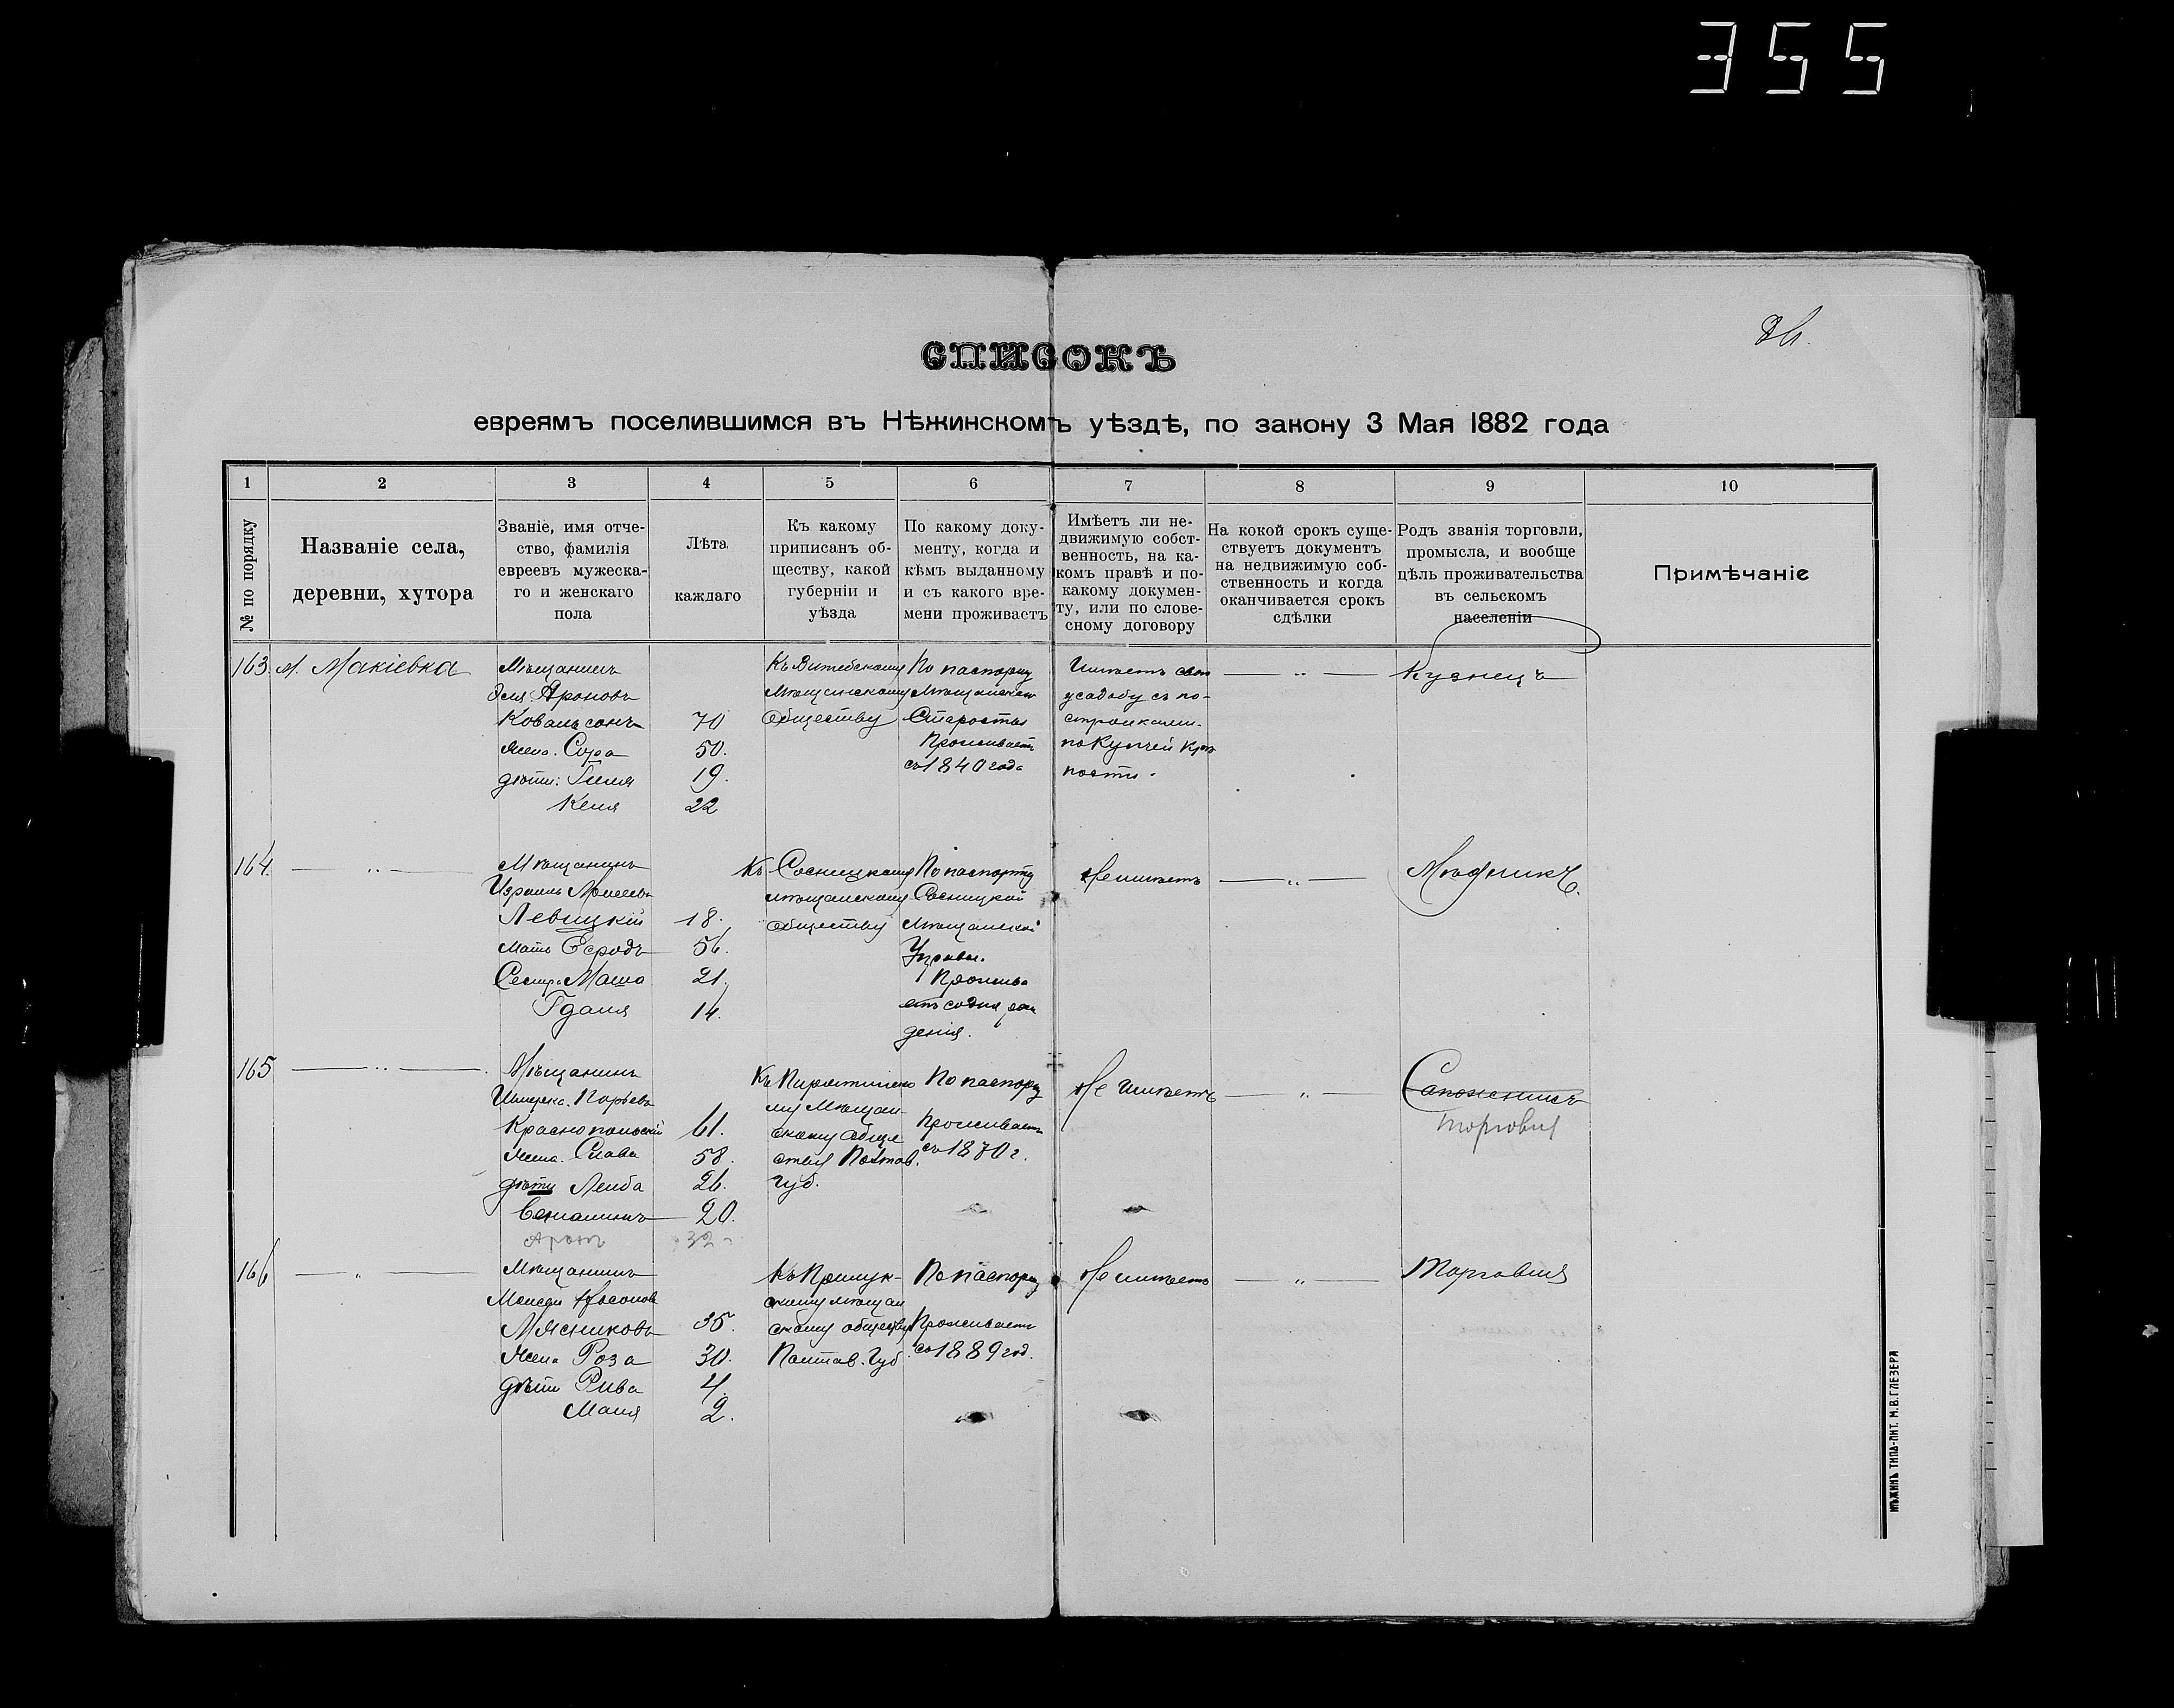 355
26.
СПИСОКЪ
евреямъ поселившимся въ Нѣжинскомъ уѣздѣ, по закону 3 Мая 1882 года
1 2 3 4 5 6 7 8 9 10
№ по порядку
Названіе села,
деревни, хутора
Званіе, имя отче-
ство, фамилія
евреевъ мужеска-
го и женскаго
пола
Лѣта
каждаго
Къ какому
приписанъ об-
ществу, какой
губерніи и
уѣзда
По какому доку-
менту, когда и
кѣмъ выданному
и съ какого вре-
мени проживаетъ
Имѣетъ ли не-
движимую собст-
венность, на ка-
комъ правѣ и по-
какому докумен-
ту, или по слове-
сному договору
На кокой срокъ суще-
ствуетъ документъ
на недвижимую соб-
ственность и когда
оканчивается срокъ
сдѣлки
Родъ званія торговли,
промысла, и вообще
цѣль проживательства
въ сельскомъ
населеніи
Примѣчаніе
163. М. Макіевка
Мѣщанинъ
Ароновъ
Ковальсонъ 70
жена. Сура 50.
дѣти: Гиля 19.
Кеня 22
Къ Витебскому
Мѣщанскому
Обществу
По паспорту
Мѣщанскаго
Старосты
Проживаетъ
съ 1840 года
Имѣетъ свою
усадьбу съ по-
стройками.
по Купчей крѣ
пости.
— „ —
Кузнецъ
164. — „ —
Мѣщанинъ
Израиль Моисеевъ
Левицкій 18.
Мать 56.
Сестр. Маша 21.
14.
Къ Сосницкому
мѣщанскому
обществу
По паспорту
Сосницкой
Мѣщанской
Управы.
Прожива
етъ со дня рож
денія.
Не имѣетъ
— „ —
Мѣдникъ.
165 — „ —
Мѣщанинъ
Краснопольскій 61.
Жена. Слава 58.
дѣти Лейба 26.
Веніаминъ 20.
Аронъ 32
Къ Пирятинско
му Мѣщан-
скому обще
ству Полтав.
Губ.
По паспорту
Проживаетъ
съ 1870 г.
Не имѣетъ
— „ —
Сапожникъ
торговля
166 — „ —
Мѣщанинъ
Моисей
Мясниковъ 35.
Жена Роза 30.
дѣти Рива 4.
Маня 2.
Къ Прилук-
скому мѣщан
скому обществу
Полтав. Губ
По паспорту
Проживаетъ
съ 1889 год.
Не имѣетъ
— „ —
Торговля
НѢЖИНЪ ТИПА-ЛИТ. М.В.ГЛЕЗЕРА